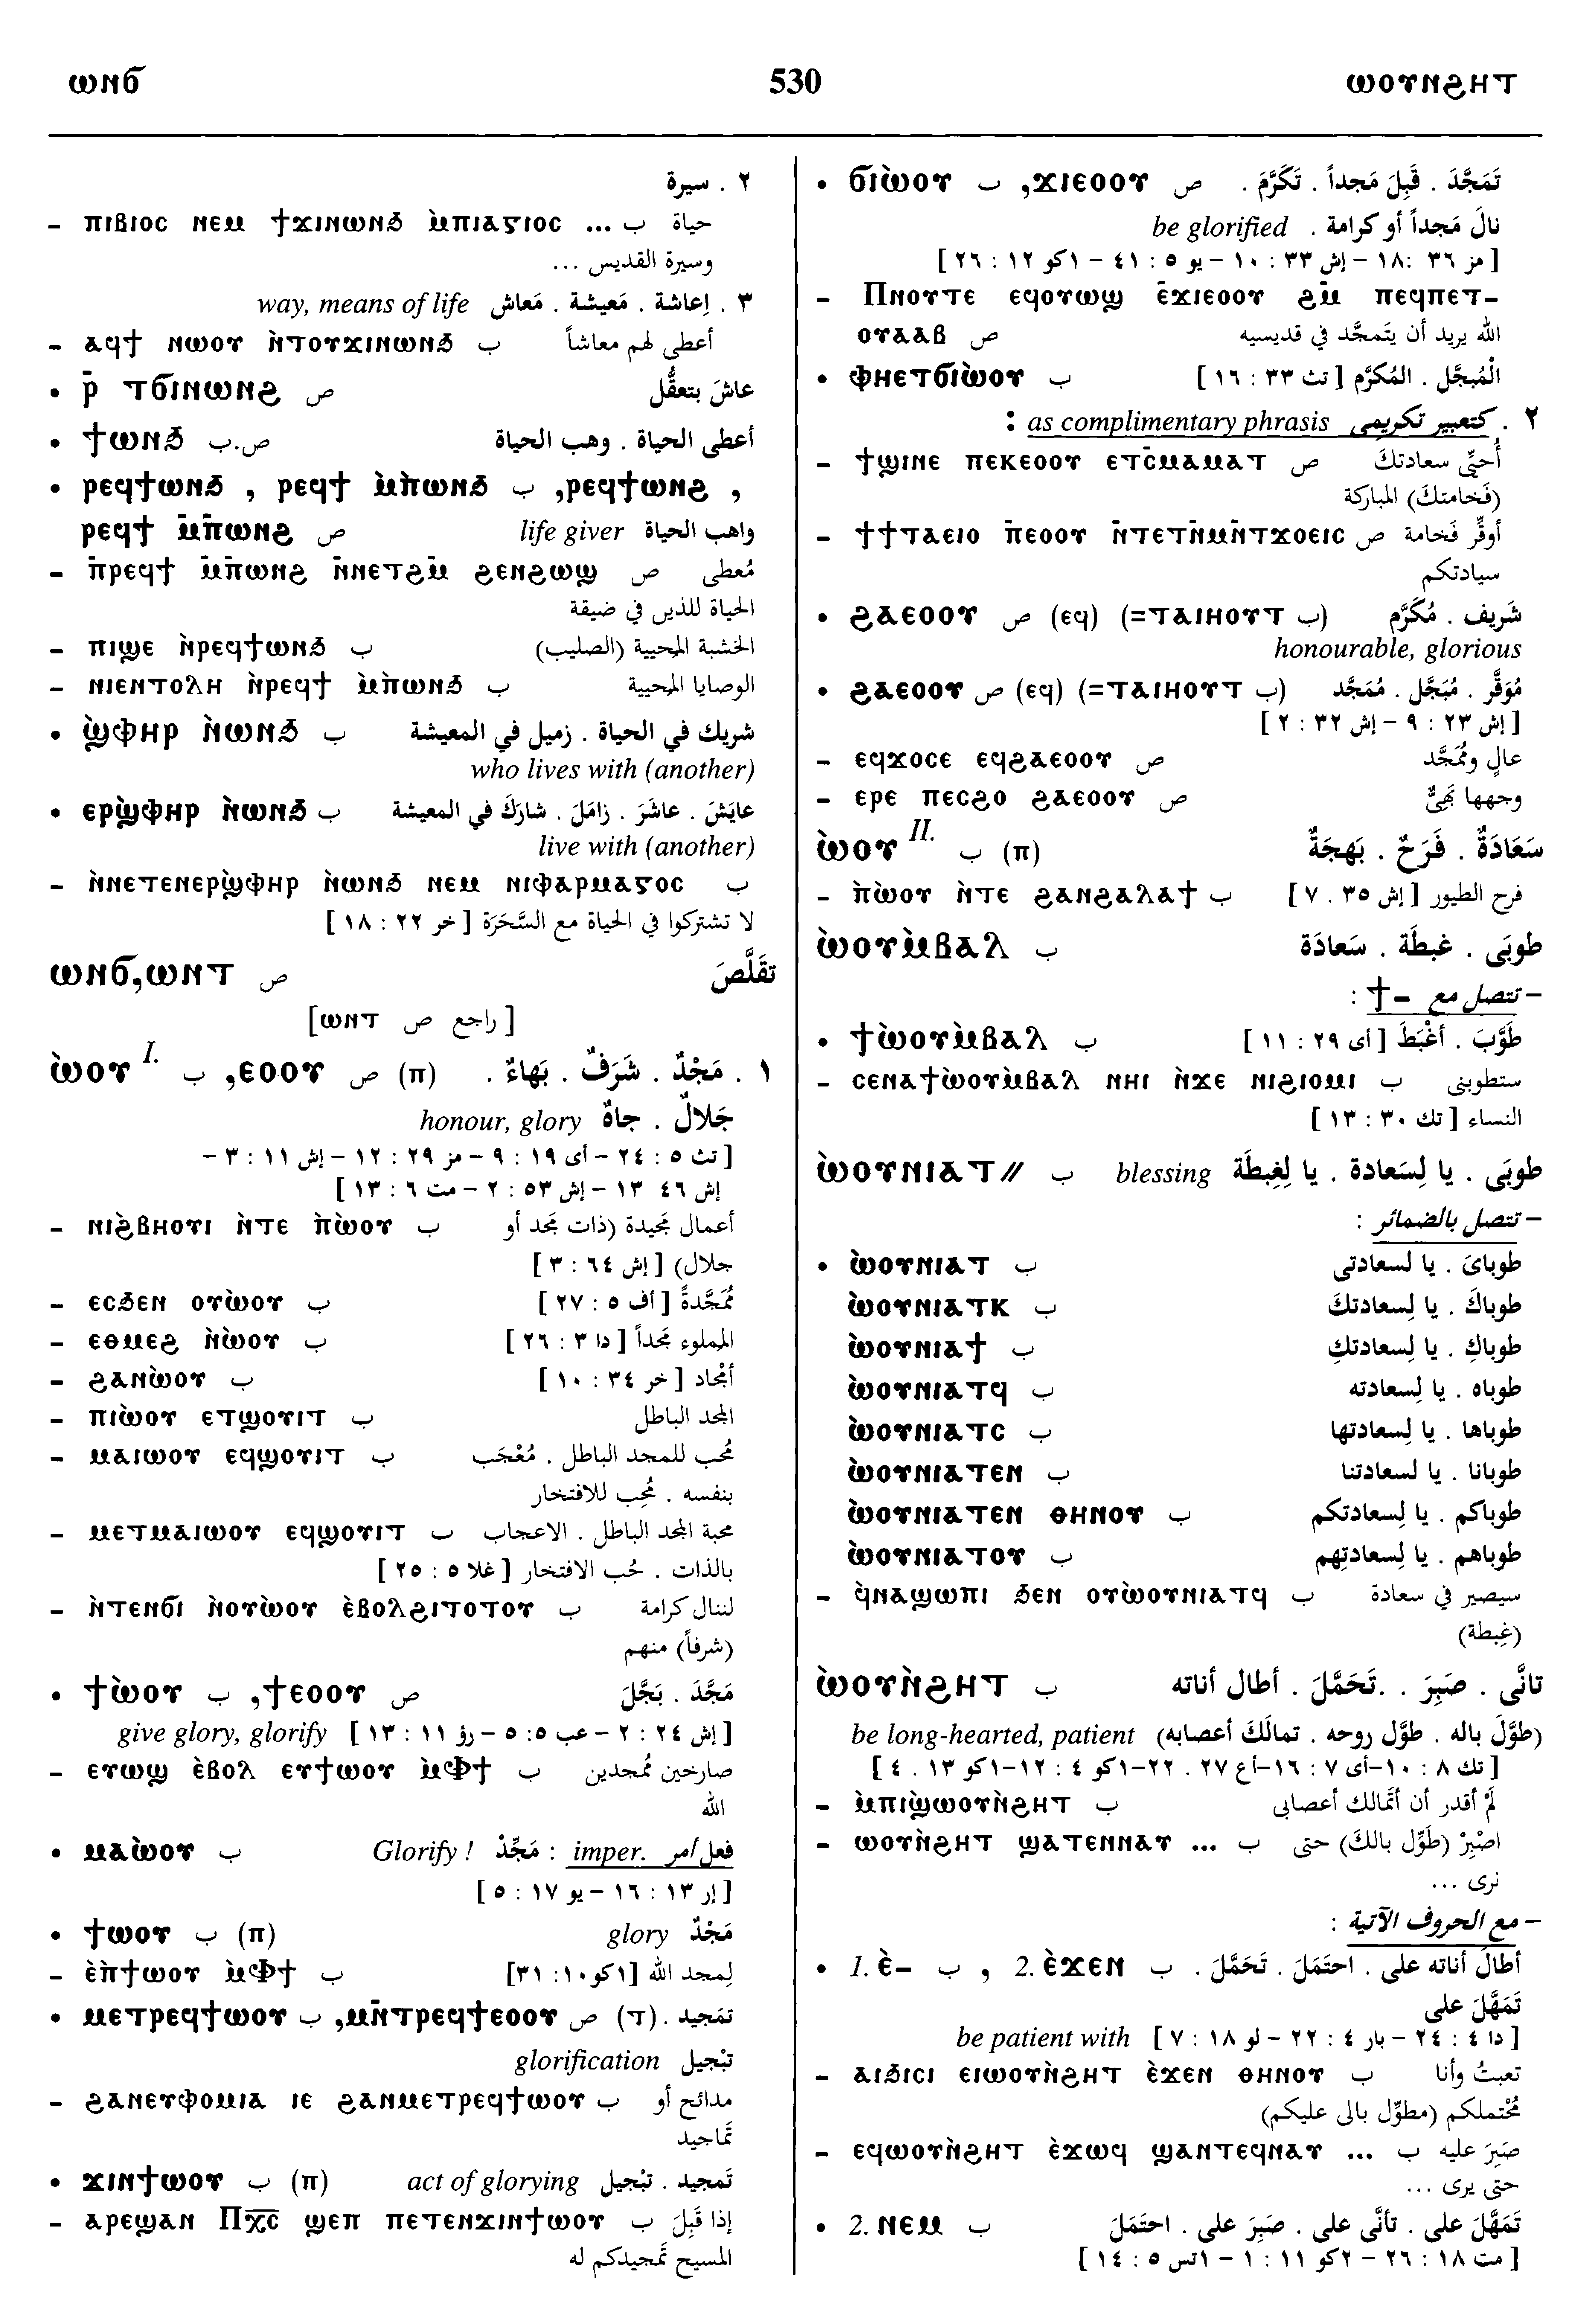 ⲱⲛϭ 530 ⲱⲟⲩⲛϩⲏⲧ
٢ . سيرة
– ⲡⲓⲃⲓⲟⲥ ⲛⲉⲙ ϯϫⲓⲛⲱⲛϧ ⲙ̀ⲡⲓⲁⲅⲓⲟⲥ ... ب حياة
وسيرة القديس ...
٣ . إعاشة . مَعيشة . مَعاش way, means of life
– ⲁϥϯ ⲛⲱⲟⲩ ⲛ̀ⲧⲟⲩϫⲓⲛⲱⲛϧ ب أعطى لهم معاشاً
• ⲣ̄ ⲧϭⲓⲛⲱⲛϩ ص عاشَ بتعقُّل
• ϯⲱⲛϧ ص.ب أعطى الحياة . وهب الحياة
• ⲣⲉϥϯⲱⲛϧ , ⲣⲉϥϯ ⲙ̀ⲡⲱⲛϧ ب ,ⲣⲉϥϯⲱⲛϩ ,
ⲣⲉϥϯ ⲙ̄ⲡⲱⲛϩ ص واهب الحياة life giver
– ⲛ̄ⲣⲉϥϯ ⲙ̄ⲡⲱⲛϩ ⲛ̄ⲛⲉⲧϩⲙ̄ ϩⲉⲛϩⲱϣ ص مُعطى
الحياة للذين في ضيقة
– ⲡⲓϣⲉ ⲛ̀ⲣⲉϥϯⲱⲛϧ ب الخشبة المحيية (الصليب)
– ⲛⲓⲉⲛⲧⲟⲗⲏ ⲛ̀ⲣⲉϥϯ ⲙ̀ⲡⲱⲛϧ ب الوصايا المحيية
• ϣ̀ⲫⲏⲣ ⲛ̀ⲱⲛϧ ب شريك في الحياة . زميل في المعيشة
who lives with (another)
• ⲉⲣϣ̀ⲫⲏⲣ ⲛ̀ⲱⲛϧ ب عايَشَ . عاشَرَ . زامَلَ . شارَكَ في المعيشة
live with (another)
– ⲛ̀ⲛⲉⲧⲉⲛⲉⲣϣ̀ⲫⲏⲣ ⲛ̀ⲱⲛϧ ⲛⲉⲙ ⲛⲓⲫⲁⲣⲙⲁⲅⲟⲥ ب
لا تشتركوا في الحياة مع السَّحَرَة [ خر ٢٢ : ١٨ ]
ⲱⲛϭ,ⲱⲛⲧ ص تقَلَّصَ
[ راجع ص ⲱⲛⲧ]
ⲱ̀ⲟⲩ I. ب ,ⲉⲟⲟⲩ ص (ⲡ) ١ . مَجْدٌ . شَرَفٌ . بَهاءٌ .
جَلالٌ . جاهٌ honour, glory
[ تث ٥ : ٢٤ – أى ١٩ : ٩ – مز ٢٩ : ١٢ – إش ١١ : ٣ –
إش ٤٦ ١٣ – إش ٥٣ : ٢ – مت ٦ : ١٣ ]
– ⲛⲓϩ̀ⲃⲏⲟⲩⲓ ⲛ̀ⲧⲉ ⲡ̀ⲱⲟⲩ ب أعمال مجيدة (ذات مجد أو
جلال) [ إش ٦٤ : ٣ ]
– ⲉⲥϧⲉⲛ ⲟⲩⲱ̀ⲟⲩ ب مُمَجَّدةً [ أف ٥ : ٢٧ ]
– ⲉⲑⲙⲉϩ ⲛ̀ⲱⲟⲩ ب المملوء مجداً [ دا ٣ : ٢٦ ]
– ϩⲁⲛⲱ̀ⲟⲩ ب أمجاد [ خر ٣٤ : ١٠ ]
– ⲡⲓⲱ̀ⲟⲩ ⲉⲧϣⲟⲩⲓⲧ ب المجد الباطل
– ⲙⲁⲓⲱⲟⲩ ⲉϥϣⲟⲩⲓⲧ ب مُحب للمجد الباطل . مُعْجَب
بنفسه . مُحِب للافتخار
– ⲙⲉⲧⲙⲁⲓⲱⲟⲩ ⲉϥϣⲟⲩⲓⲧ ب محبة المجد الباطل . الاعجاب
بالذات . حُب الافتخار [ غلا ٥ : ٢٥ ]
– ⲛ̀ⲧⲉⲛϭⲓ ⲛ̀ⲟⲩⲱ̀ⲟⲩ ⲉ̀ⲃⲟⲗϩⲓⲧⲟⲧⲟⲩ ب لننال كرامة
(شرفاً) منهم
• ϯⲱ̀ⲟⲩ ب ,ϯⲉⲟⲟⲩ ص مَجَّدَ . بَجَّلَ
give glory, glorify [ إش ٢٤ : ٢ – عب ٥: ٥ – رؤ ١١ : ١٣ ]
– ⲉⲩⲱϣ ⲉ̀ⲃⲟⲗ ⲉⲩϯⲱⲟⲩ ⲙ̀Ⲫϯ ب صارخين مُمجدين
الله
• ⲙⲁⲱ̀ⲟⲩ ب Glorify ! فعل أمر imper. : مَجِّدْ
[ إر ١٣ : ١٦ – يو ١٧ : ٥ ]
• ϯⲱⲟⲩ ب (ⲡ) مَجْدٌ glory
– ⲉ̀ⲡ̀ϯⲱⲟⲩ ⲙ̀Ⲫϯ ب لِمجد الله [١كو١٠: ٣١]
• ⲙⲉⲧⲣⲉϥϯⲱⲟⲩ ب ,ⲙⲛ̄ⲧⲣⲉϥϯⲉⲟⲟⲩ ص (ⲧ) تمَجيد.
تبْجيل glorification
– ϩⲁⲛⲉⲩⲫⲟⲙⲓⲁ ⲓⲉ ϩⲁⲛⲙⲉⲧⲣⲉϥϯⲱⲟⲩ ب مدائح أو
تماجيد
• ϫⲓⲛϯⲱⲟⲩ ب (ⲡ) تَمجيد . تبْجيل act of glorying
– ⲁⲣⲉϣⲁⲛ Ⲡⲭ̅ⲥ̅ ϣⲉⲡ ⲡⲉⲧⲉⲛϫⲓⲛϯⲱⲟⲩ ب إذا قَبِلَ
المسيح تمجيدكم له
• ϭⲓⲱ̀ⲟⲩ ب ,ϫⲓⲉⲟⲟⲩ ص تَمَجَّدَ . قَبِلَ مَجداً . تَكَرَّمَ .
نالَ مَجداً أو كرامة . be glorified
[ مز ٣٦ :١٨ – إش ٣٣ : ١٠ – يو ٥ : ٤١ – ١كو ١٢ : ٢٦ ]
– Ⲡⲛⲟⲩⲧⲉ ⲉϥⲟⲩⲱϣ ⲉ̄ϫⲓⲉⲟⲟⲩ ϩⲙ̄ ⲡⲉϥⲡⲉⲧ–
ⲟⲩⲁⲁⲃ ص الله يريد أن يتَمجَّد في قديسيه
• ⲫⲏⲉⲧϭⲓⲱ̀ⲟⲩ ب الْمُبجَّل . المُكرَّم [ تث ٣٣ : ١٦ ]
٢ . كتعبير تكريمى as complimentary phrasis :
– ϯϣⲓⲛⲉ ⲡⲉⲕⲉⲟⲟⲩ ⲉⲧⲥ̄ⲙⲁⲙⲁⲁⲧ ص أُحيِّى سعادتكَ
(فَخامتكَ) المباركة
– ϯϯⲧⲁⲉⲓⲟ ⲡ̄ⲉⲟⲟⲩ ⲛ̄ⲧⲉⲧⲛ̄ⲙⲛ̄ⲧϫⲟⲉⲓⲥ ص أوقِّر فَخامة
سيادتكم
• ϩⲁⲉⲟⲟⲩ ص (ⲉϥ) (=ⲧⲁⲓⲏⲟⲩⲧ ب) شَريف . مُكَرَّم
honourable, glorious
• ϩⲁⲉⲟⲟⲩ ص (ⲉϥ) (=ⲧⲁⲓⲏⲟⲩⲧ ب) مُوَقَّر . مُبَجَّل . مُمَجَّد
[ إش ٢٣ : ٩ – إش ٣٢ : ٢ ]
– ⲉϥϫⲟⲥⲉ ⲉϥϩⲁⲉⲟⲟⲩ ص عالٍ ومُمَجَّد
– ⲉⲣⲉ ⲡⲉⲥϩⲟ ϩⲁⲉⲟⲟⲩ ص وجهها بَهِىٌّ
ⲱ̀ⲟⲩ II. ب (ⲡ) سَعَادَةٌ . فَرَحٌ . بَهجَةٌ
– ⲡ̀ⲱ̀ⲟⲩ ⲛ̀ⲧⲉ ϩⲁⲛϩⲁⲗⲁϯ ب فرح الطيور [ إش ٣٥ . ٧ ]
ⲱ̀ⲟⲩⲙ̀ⲃⲁⲗ ب طوبَى . غبطَة . سَعادَة
– تتصل مع –ϯ :
• ϯⲱ̀ⲟⲩⲙ̀ⲃⲁⲗ ب طَوَّبَ . أغْبَطَ [ أى ٢٩ : ١١ ]
– ⲥⲉⲛⲁϯⲱ̀ⲟⲩⲙ̀ⲃⲁⲗ ⲛⲏⲓ ⲛ̀ϫⲉ ⲛⲓϩⲓⲟⲙⲓ ب ستطوبنى
النساء [ تك ٣٠ : ١٣ ]
ⲱ̀ⲟⲩⲛⲓⲁⲧ// ب طوبَى . يا لِسَعادة . يا لِغِبطَة blessing
– تتصل بالضمائر :
• ⲱ̀ⲟⲩⲛⲓⲁⲧ ب طوباىَ . يا لسعادتى
ⲱ̀ⲟⲩⲛⲓⲁⲧⲕ ب طوباكَ . يا لِسعادتكَ
ⲱ̀ⲟⲩⲛⲓⲁϯ ب طوباكِ . يا لِسعادتكِ
ⲱ̀ⲟⲩⲛⲓⲁⲧϥ ب طوباه . يا لِسعادته
ⲱ̀ⲟⲩⲛⲓⲁⲧⲥ ب طوباها . يا لِسعادتها
ⲱ̀ⲟⲩⲛⲓⲁⲧⲉⲛ ب طوبانا . يا لسعادتنا
ⲱ̀ⲟⲩⲛⲓⲁⲧⲉⲛ ⲑⲏⲛⲟⲩ ب طوباكم . يا لِسعادتكم
ⲱ̀ⲟⲩⲛⲓⲁⲧⲟⲩ ب طوباهم . يا لِسعادتِهم
– ϥ̀ⲛⲁϣⲱⲡⲓ ϧⲉⲛ ⲟⲩⲱ̀ⲟⲩⲛⲓⲁⲧϥ ب سيصير في سعادة
(غِبطة)
ⲱ̀ⲟⲩⲛ̀ϩⲏⲧ ب تانَّى . صَبِرَ . .تَحَمَّلَ . أطال أناته
(طوَّلَ باله . طوَّل روحه . تمالَكَ أعصابه) be long-hearted, patient
[ تك ٨ : ١٠–أى ٧ : ١٦–أع ٢٧ . ٢٢–١كو ٤ : ١٢–١كو ١٣ . ٤ ]
– ⲙ̀ⲡⲓϣⲱⲟⲩⲛ̀ϩⲏⲧ ب لَمْ أقدر أن أتَمالك أعصابى
– ⲱⲟⲩⲛ̀ϩⲏⲧ ϣⲁⲧⲉⲛⲛⲁⲩ ... ب اصْبِرْ (طَوِّل بالكَ) حتى
نرى ...
– مع الحروف الآتية :
• 1. ⲉ̀– ب , 2. ⲉ̀ϫⲉⲛ ب أطالَ أناته على . احتَمَلَ . تَحَمَّلَ .
تَمَهَّلَ على
[ دا ٤ : ٢٤ – بار ٤ : ٢٢ – لو ١٨ : ٧ ] be patient with
– ⲁⲓϧⲓⲥⲓ ⲉⲓⲱⲟⲩⲛ̀ϩⲏⲧ ⲉ̀ϫⲉⲛ ⲑⲏⲛⲟⲩ ب تعبتُ وأنا
مُحْتملكم (مطوِّل بالى عليكم)
– ⲉϥⲱⲟⲩⲛ̀ϩⲏⲧ ⲉ̀ϫⲱϥ ϣⲁⲛⲧⲉϥⲛⲁⲩ ... ب صَبَرَ عليه
حتى يرى ...
• 2. ⲛⲉⲙ ب تَمَهَّلَ على . تأنَّى على . صَبِرَ على . احتَمَلَ
[ مت ١٨ : ٢٦ – ٢كو ١١ : ١ – ١تس ٥ : ١٤ ]